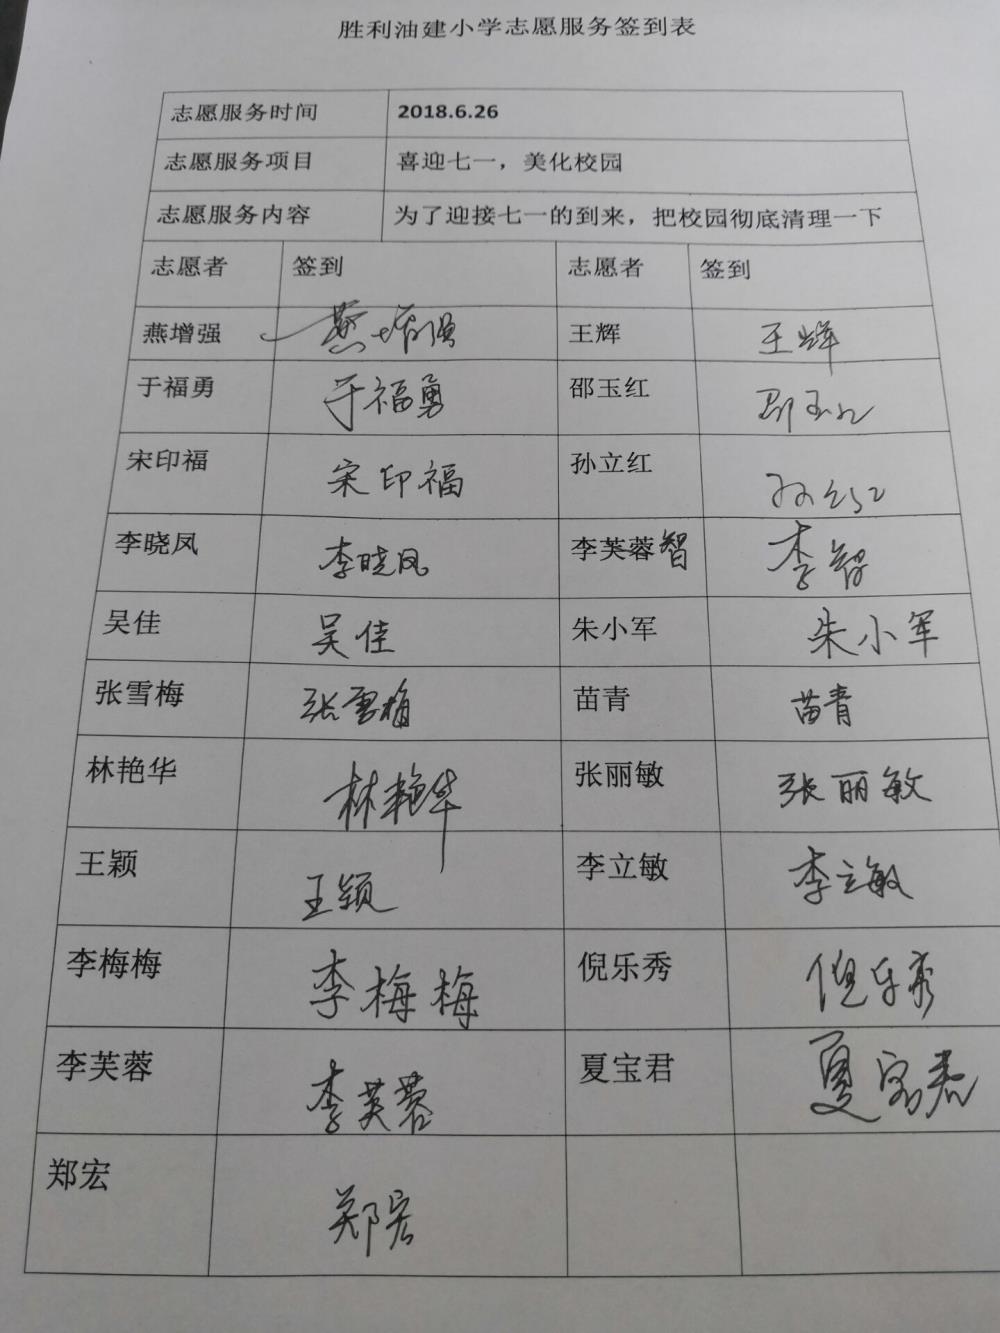 胜利油建小学志愿服务签到表
志愿服务时间 2018.6.26
志愿服务项目 喜迎七一，美化校园
志愿服务内容 为了迎接七一的到来，把校园彻底清理一下
志愿者 签到 志愿者 签到
燕增强 燕增强 王辉 王辉
于福勇 于福勇 邵玉红 邵玉红
宋印福 宋印福 孙立红 孙立红
李晓凤 李晓凤 李芙蓉智 李智
吴佳 吴佳 朱小军 朱小军
张雪梅 张雪梅 苗青 苗青
林艳华 林艳华 张丽敏 张丽敏
王颖 王颖 李立敏 李立敏
李梅梅 李梅梅 倪乐秀 倪乐秀
李芙蓉 李芙蓉 夏宝君 夏宝君
郑宏 郑宏